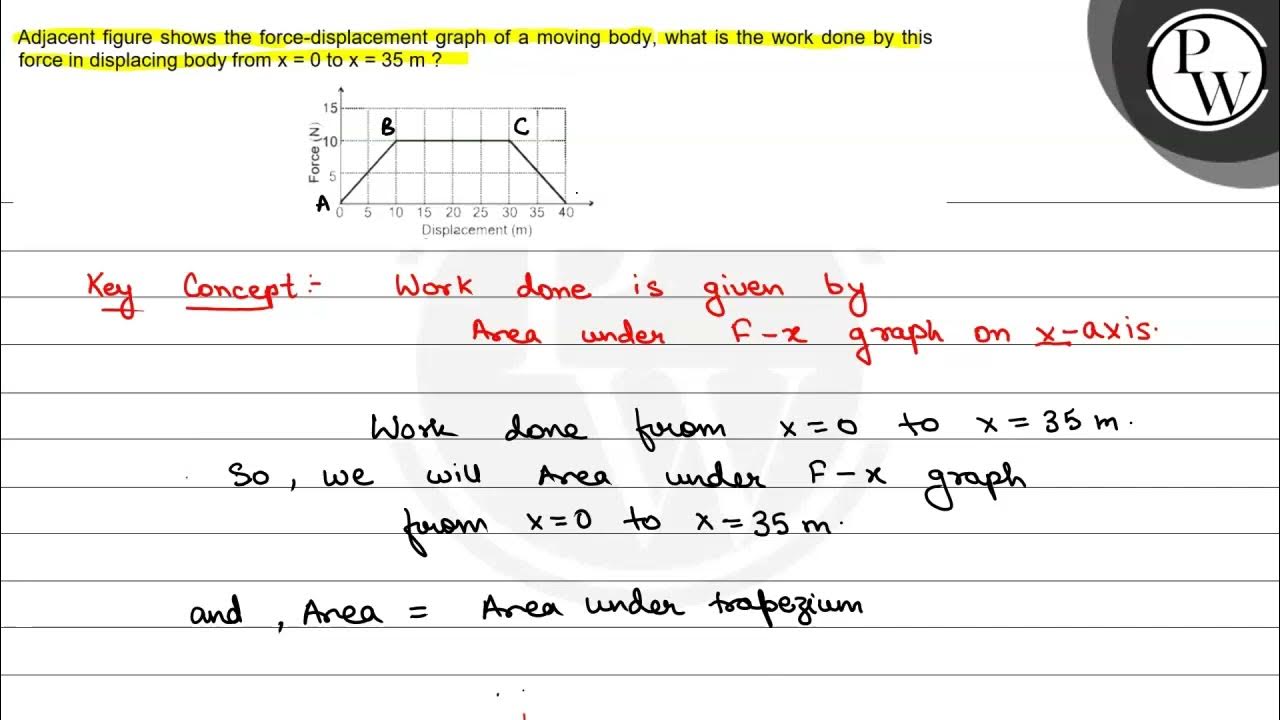 Adjacent figure shows the force-displacement graph of a moving body, what is the work done by this
force in displacing body from x = 0 to x = 35 m ?
P
W
15
B
C
10
Force (N)
5
A
0 5 10 15 20 25 30 35 40
Displacement (m)
Key Concept :- Work done is given by
Area under F-x graph on x-axis.
Work done from x=0 to x=35 m.
So, we will Area under F-x graph
from x=0 to x=35 m.
and , Area = Area under trapezium